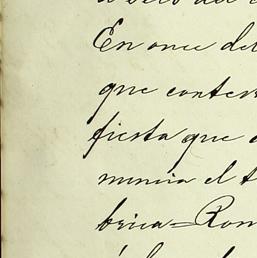 En once de
que contes
fiesta que
nuncia el t
brica=Rom